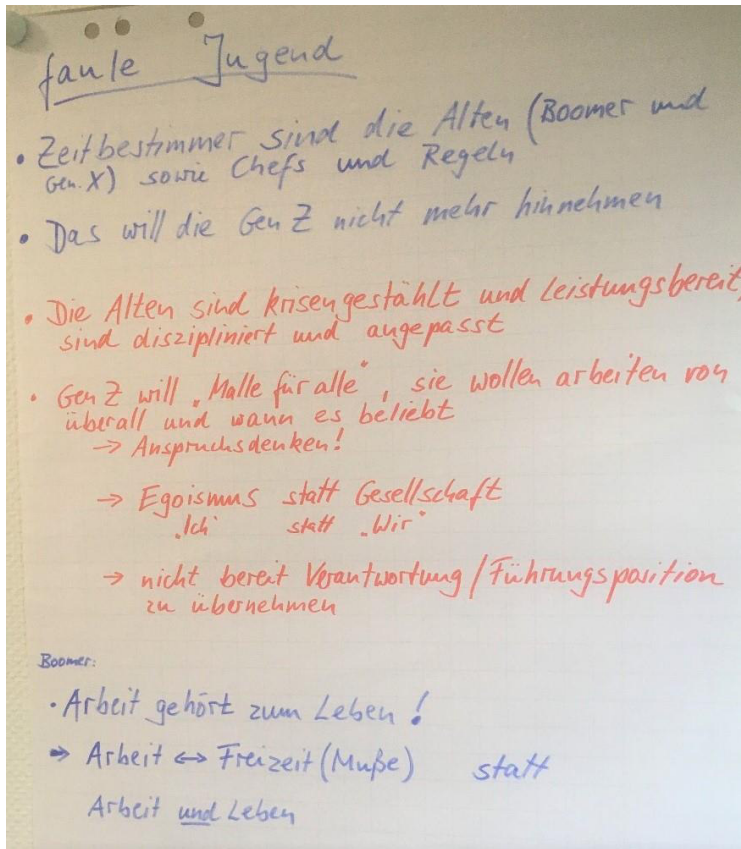 faule Jugend
• Zeitbestimmer sind die Alten (Boomer und
Gen. X) sowie Chefs und Regeln
• Das will die Gen Z nicht mehr hinnehmen
• Die Alten sind krisengestählt und leistungsbereit,
sind diszipliniert und angepasst
• Gen Z will "Malle für alle", sie wollen arbeiten von
überall und wann es beliebt
→ Anspruchsdenken!
→ Egoismus statt Gesellschaft
"Ich" statt "Wir"
→ nicht bereit Verantwortung/Führungsposition
zu übernehmen
Boomer:
• Arbeit gehört zum Leben!
→ Arbeit ↔ Freizeit (Muße) statt
Arbeit und Leben